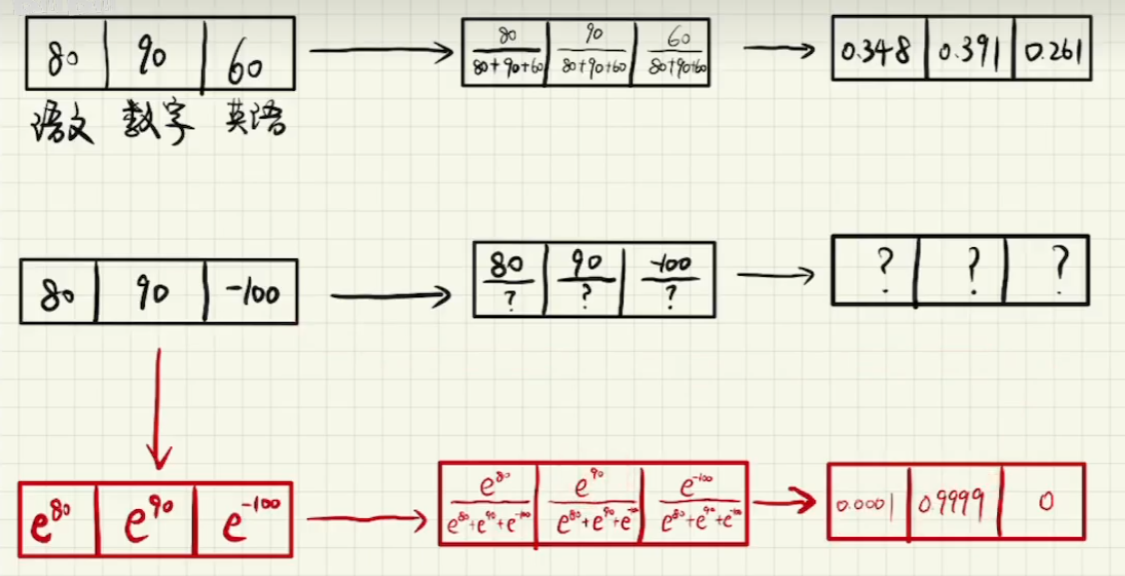 80 90 60 80/(80+90+60) 90/(80+90+60) 60/(80+90+60) 0.348 0.391 0.261
语文 数字 英语
80 90 -100 80/? 90/? -100/? ? ? ?
e^80 e^90 e^-100 e^80/(e^80+e^90+e^-100) e^90/(e^80+e^90+e^-100) e^-100/(e^80+e^90+e^-100) 0.0001 0.9999 0